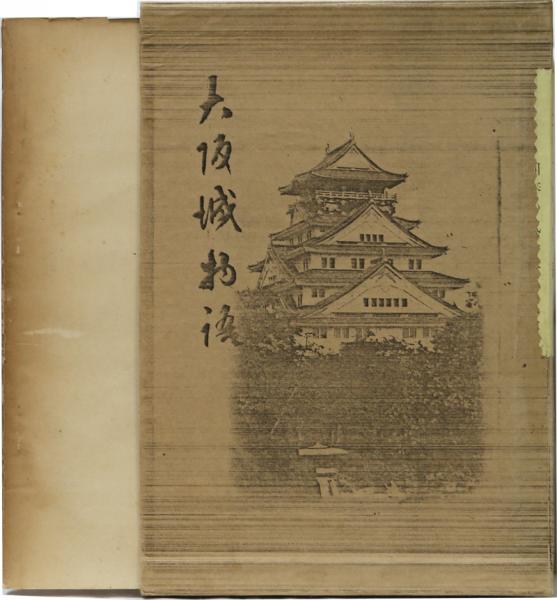 大阪城物語